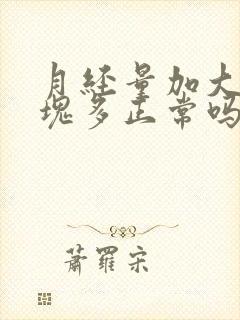 月经量加大
块多正常吗
萧羅宋